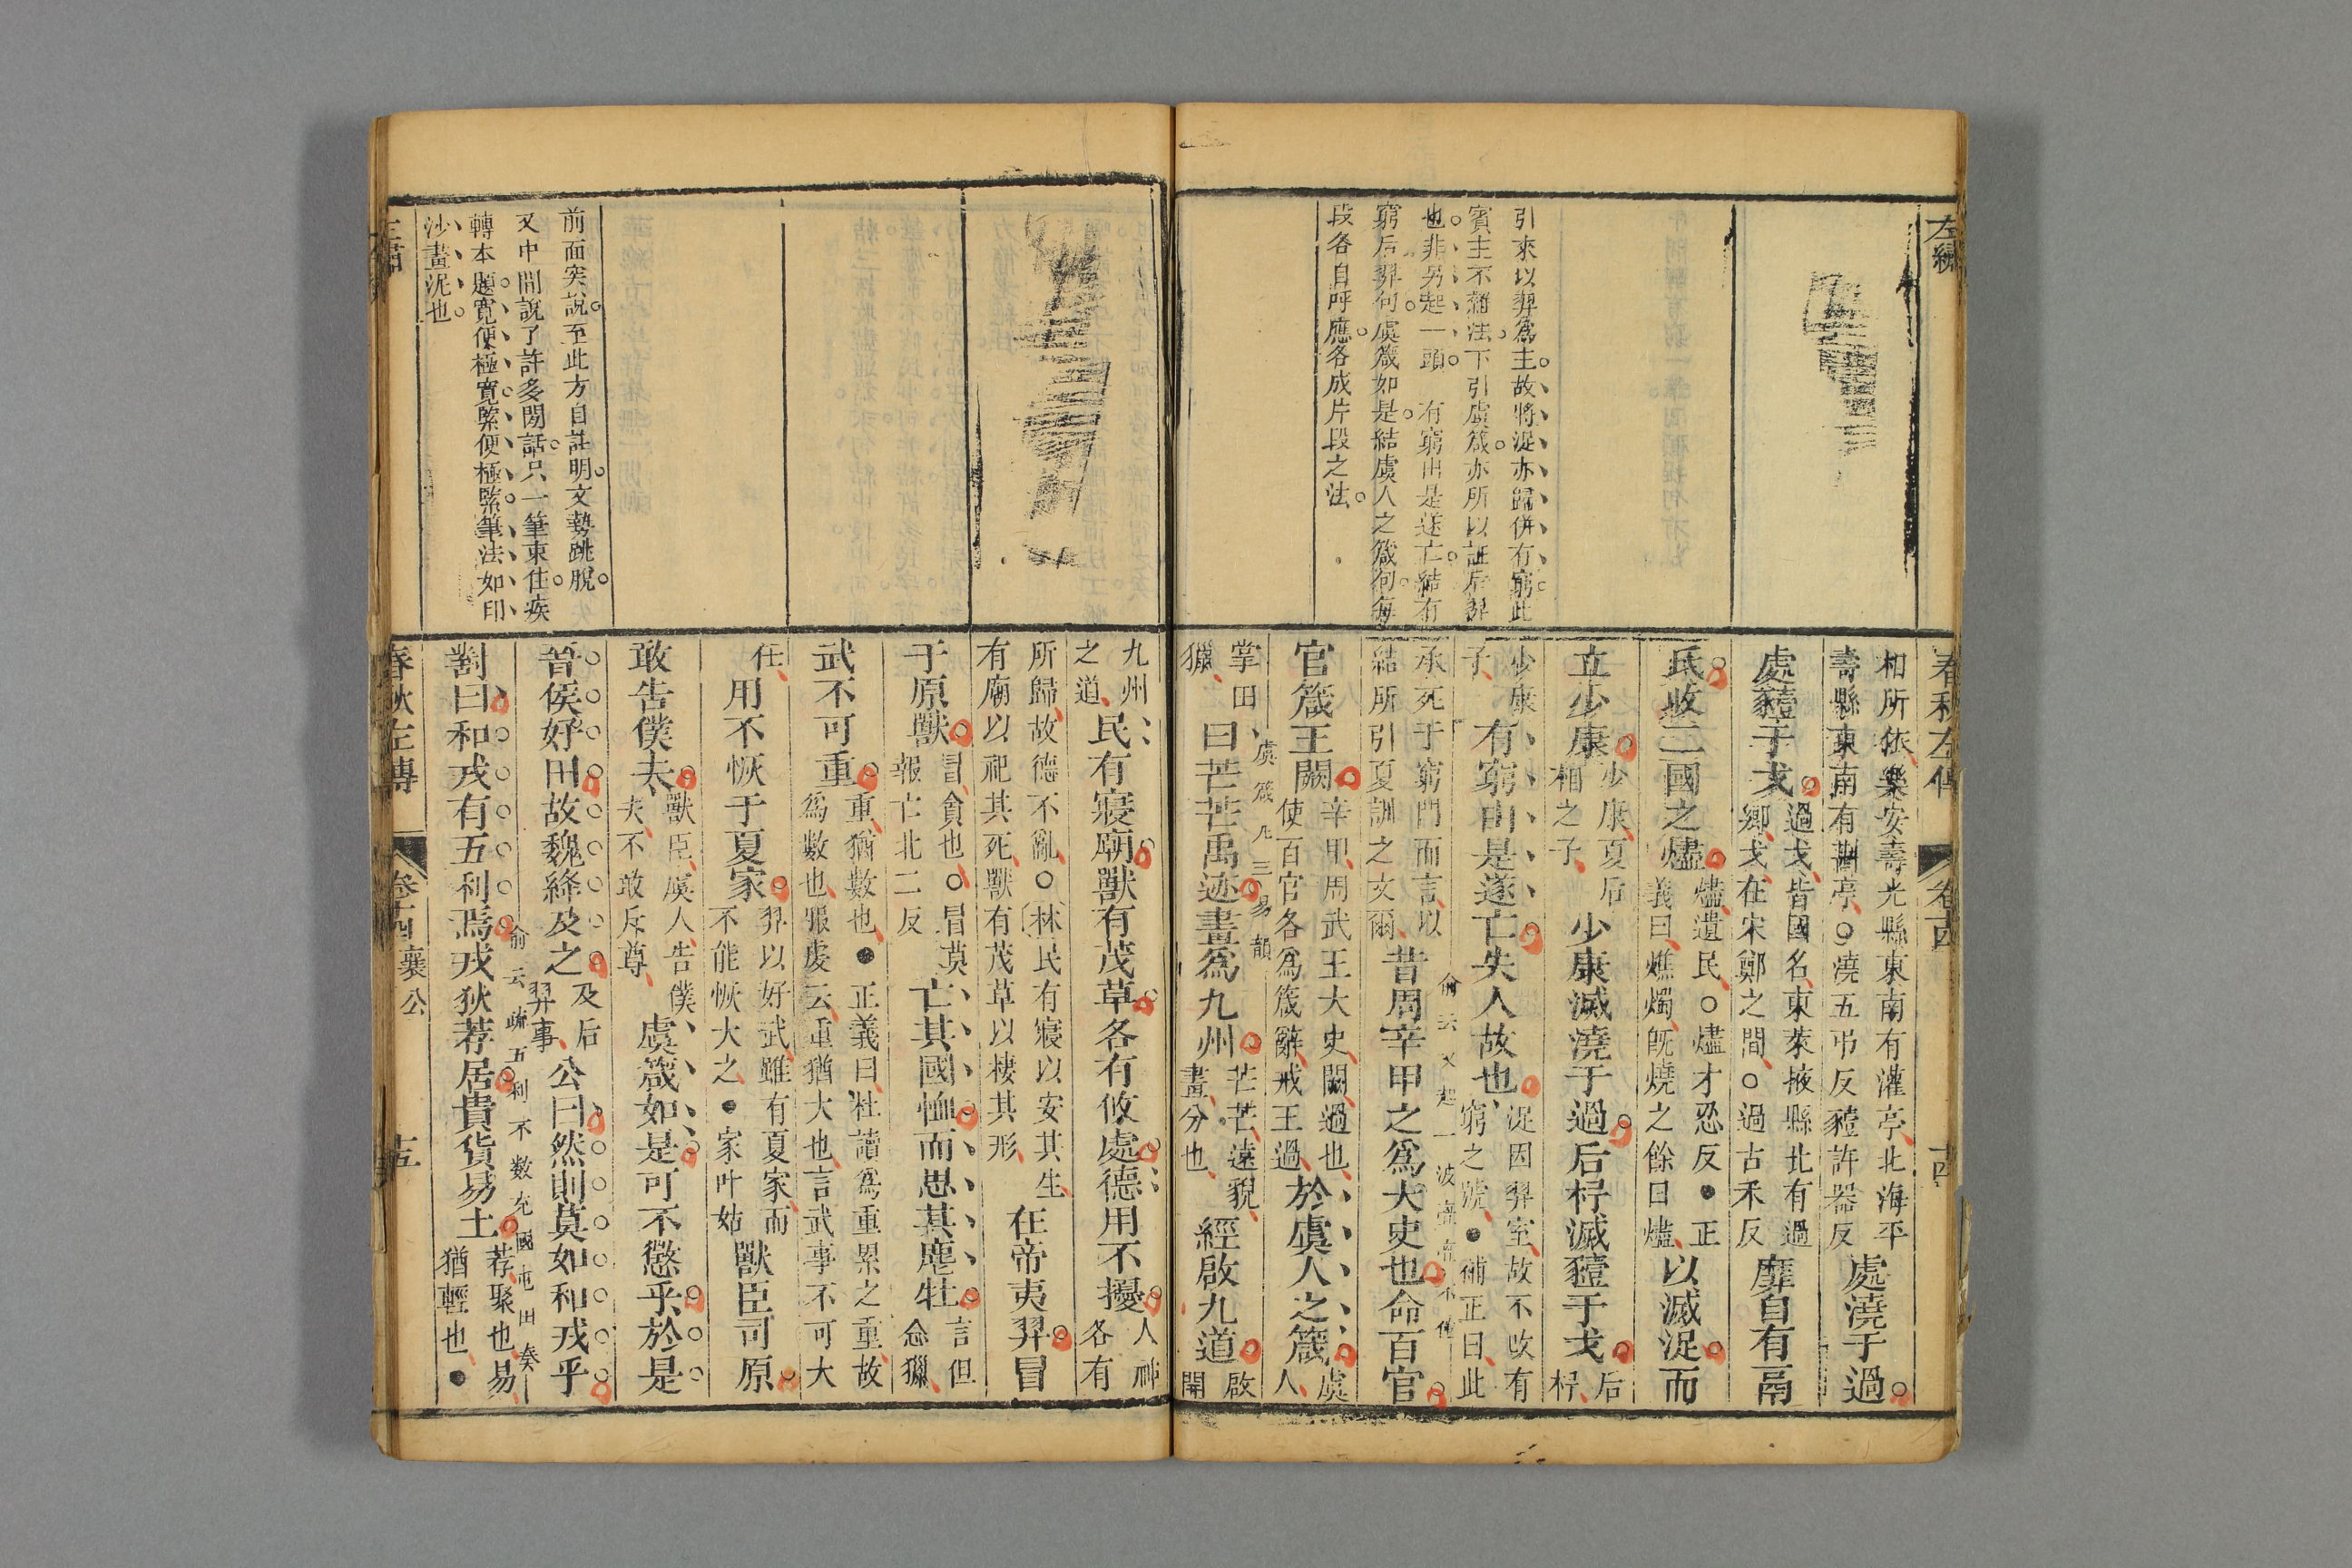 左繡
春秋左傳
卷十四
十四
引來以羿爲主故將浞亦歸併有窮此
賓主不雜法下引虞箴亦所以証后羿
也非另起一頭 有窮由是遂亡結有
窮后羿句虞箴如是結虞人之箴句每
段各自呼應各成片段之法
相所依樂安壽光縣東南有灌亭北海平
壽縣東南有斟亭○澆五弔反豷許器反
處澆于過
處豷于戈
過戈皆國名東萊掖縣北有過
鄉戈在宋鄭之間○過古禾反
靡自有鬲
氏收二國之燼
燼遺民○燼才忍反●正
義曰燋燭既燒之餘曰燼
以滅浞而
立少康
少康夏后
相之子
少康滅澆于過后杼滅豷于戈
后
杼
少康
子
有窮由是遂亡失人故也
浞因羿室故不改有
窮之號●補正曰此
俞云又起一波壺而不億
承死于窮門而言以
結所引夏訓之文爾
昔周辛甲之爲大史也命百官
官箴王闕
辛甲周武王大史闕過也
使百官各爲箴辭戒王過
於虞人之箴
虞
人
虞箴凡三易韻
掌田
獵
曰芒芒禹迹畫爲九州
芒芒遠貌
畫分也
經啟九道
啟
開
九州
之道
民有寢廟獸有茂草各有攸處德用不擾
人神
各有
所歸故德不亂○林民有寢以安其生
有廟以祀其死獸有茂草以棲其形
在帝夷羿冒
于原獸
冒貪也○冒莫
報亡北二反
亡其國恤而思其麀牡
言但
念獵
武不可重
重猶數也●正義曰杜讀爲重累之重故
爲數也張處云重猶大也言武事不可大
任
用不恢于夏家
羿以好武雖有夏家而
不能恢大之●家叶姑
獸臣司原
敢告僕夫
獸臣虞人告僕
夫不敢斥尊
虞箴如是可不懲乎於是
晉侯好田故魏絳及之
及后
羿事
公曰然則莫如和戎乎
俞云疏五利不数充國屯田奏
對曰和戎有五利焉戎狄荐居貴貨易土
荐聚也易
猶輕也●
前面突說至此方自註明文勢跳脫
又中間說了許多閒話只一筆束住疾
轉本題寬便極寬緊便極緊筆法如印
沙畫泥也
春秋左傳
卷十四
襄公
十五